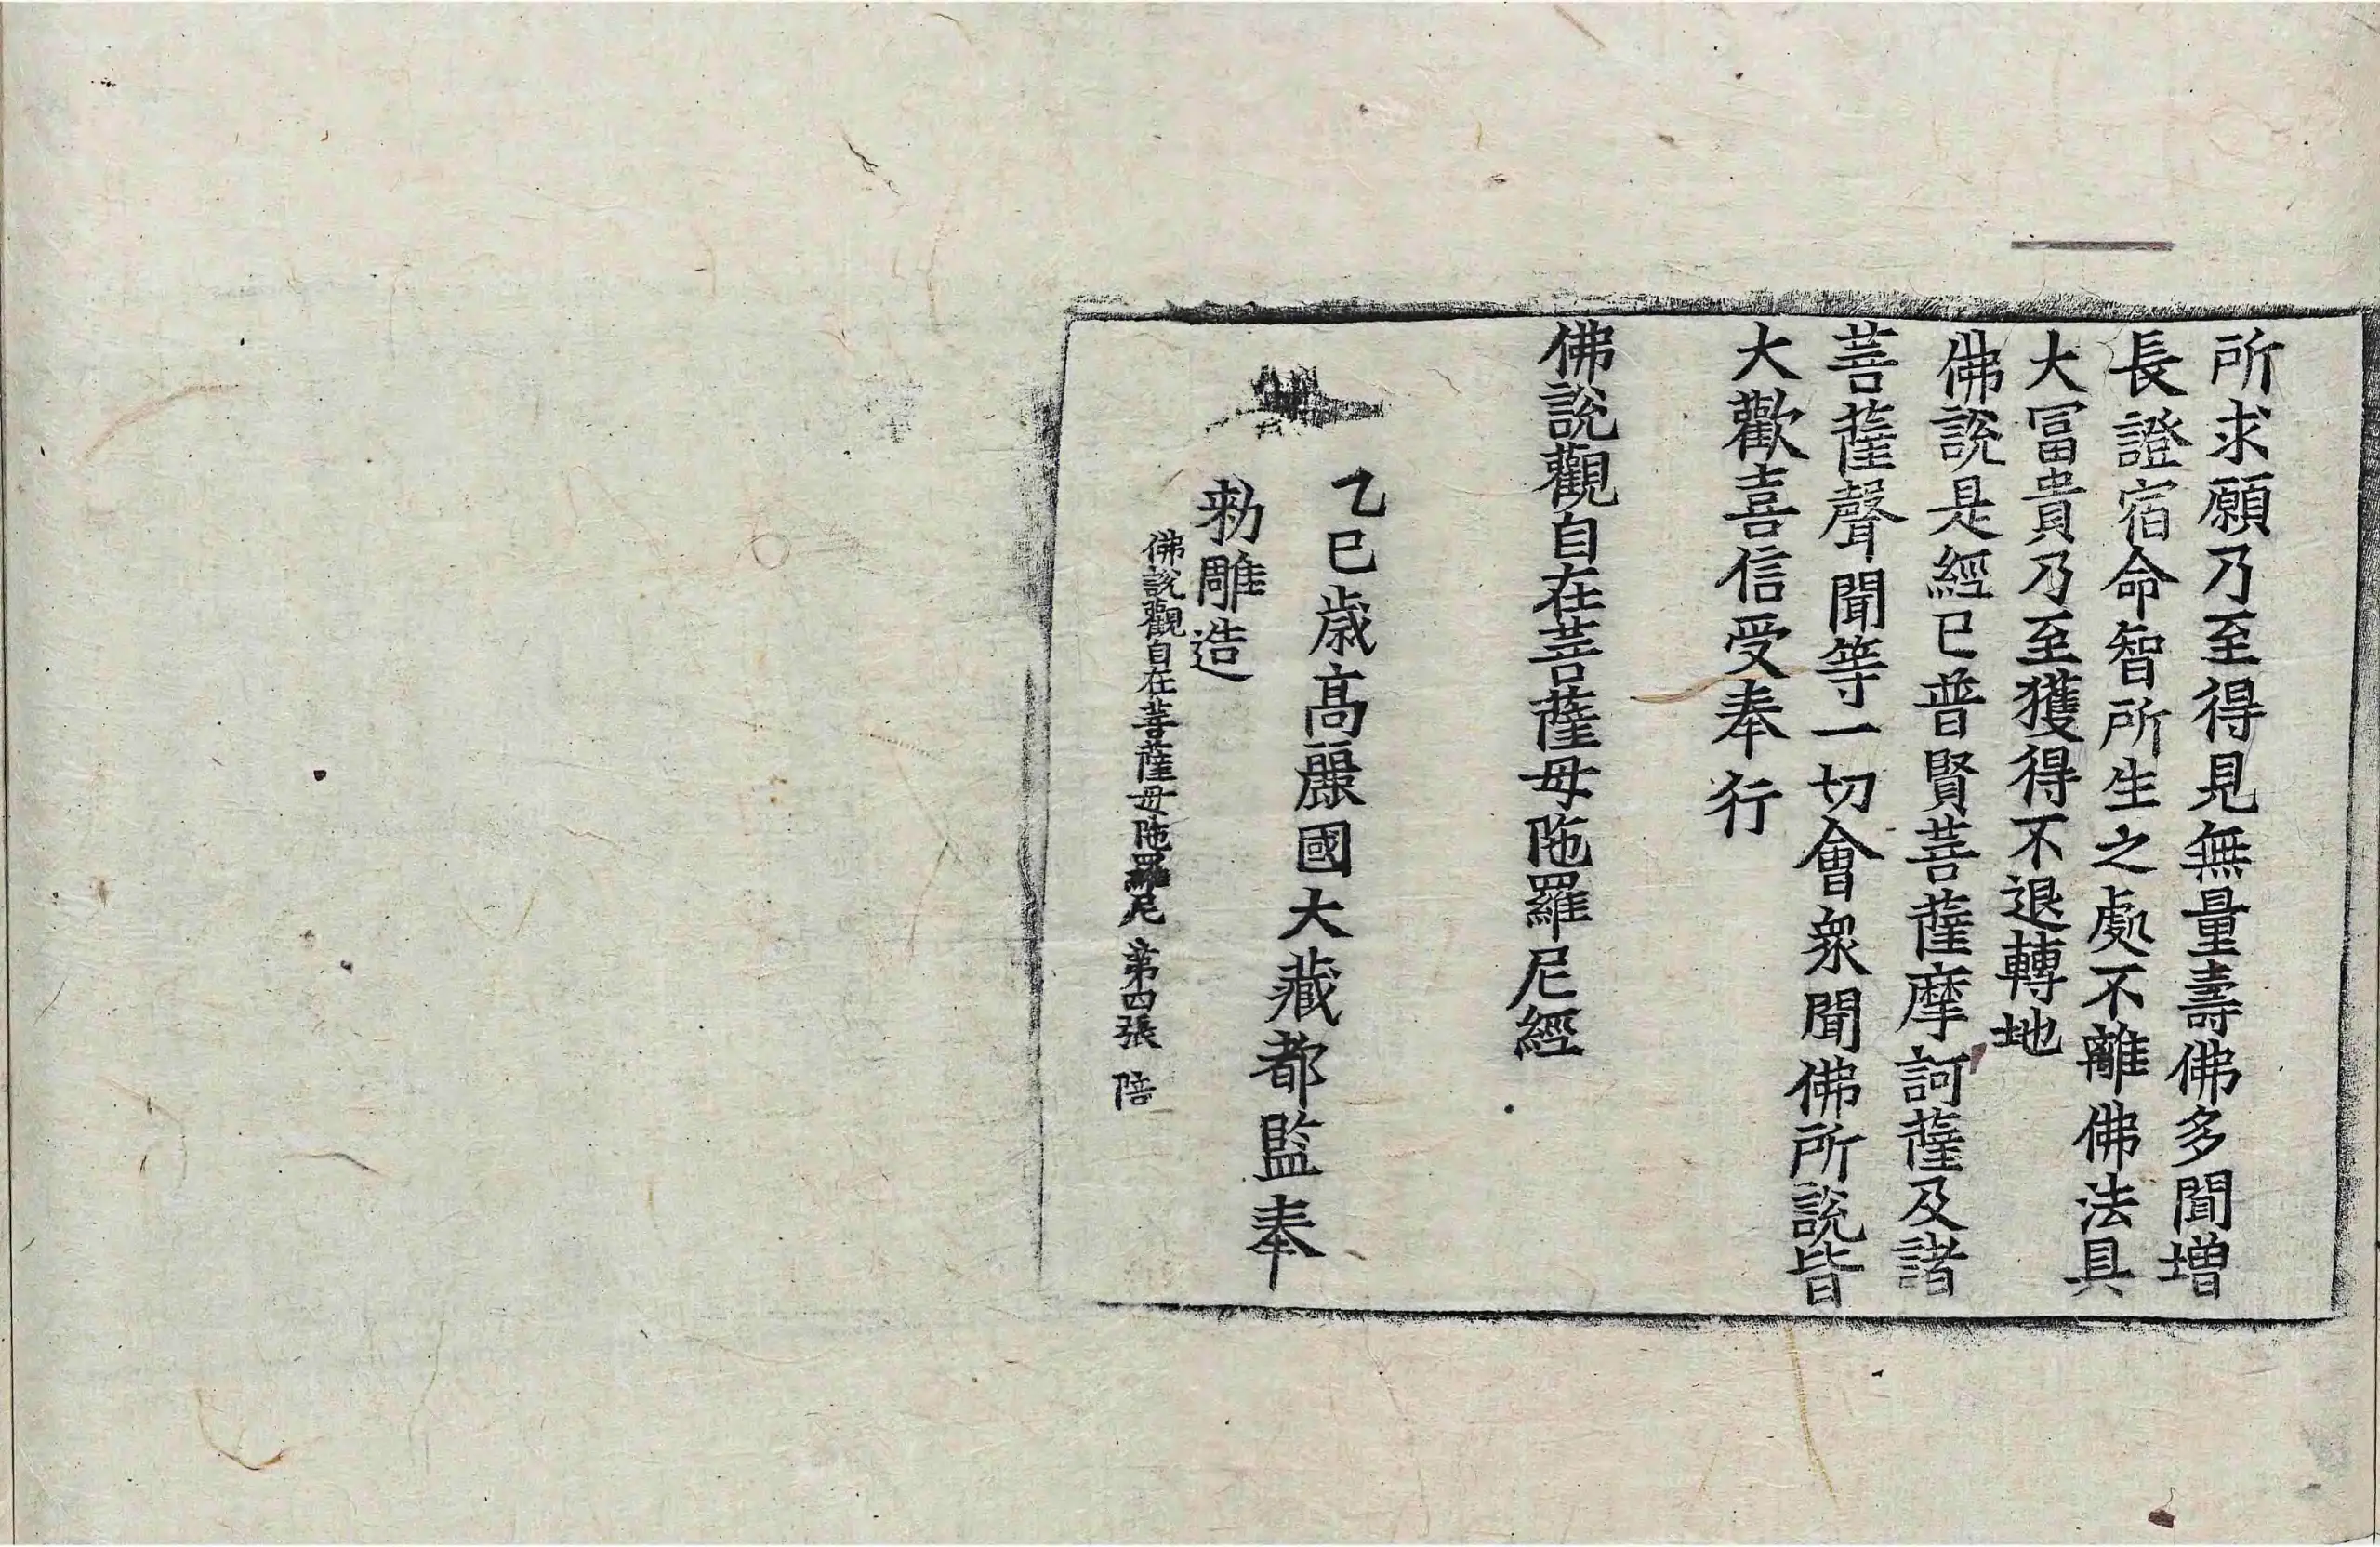 所求願乃至得見無量壽佛多聞增
長證宿命智所生之處不離佛法具
大冨貴乃至獲得不退轉地
佛說是經已普賢菩薩摩訶薩及諸
菩薩聲聞等一切會衆聞佛所說皆
大歡喜信受奉行
佛說觀自在菩薩母陁羅尼經
乙巳歳高麗國大藏都監奉
勑雕造
佛說觀自在菩薩母陁羅尼 第四張 陪